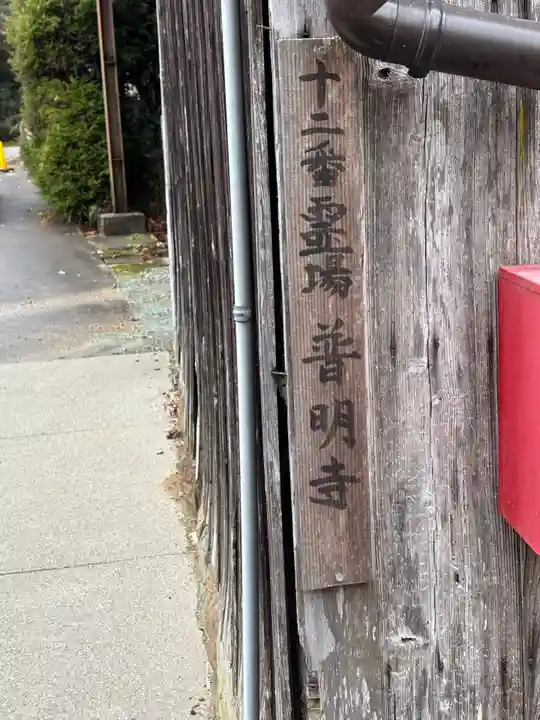 十二番霊場 普明寺